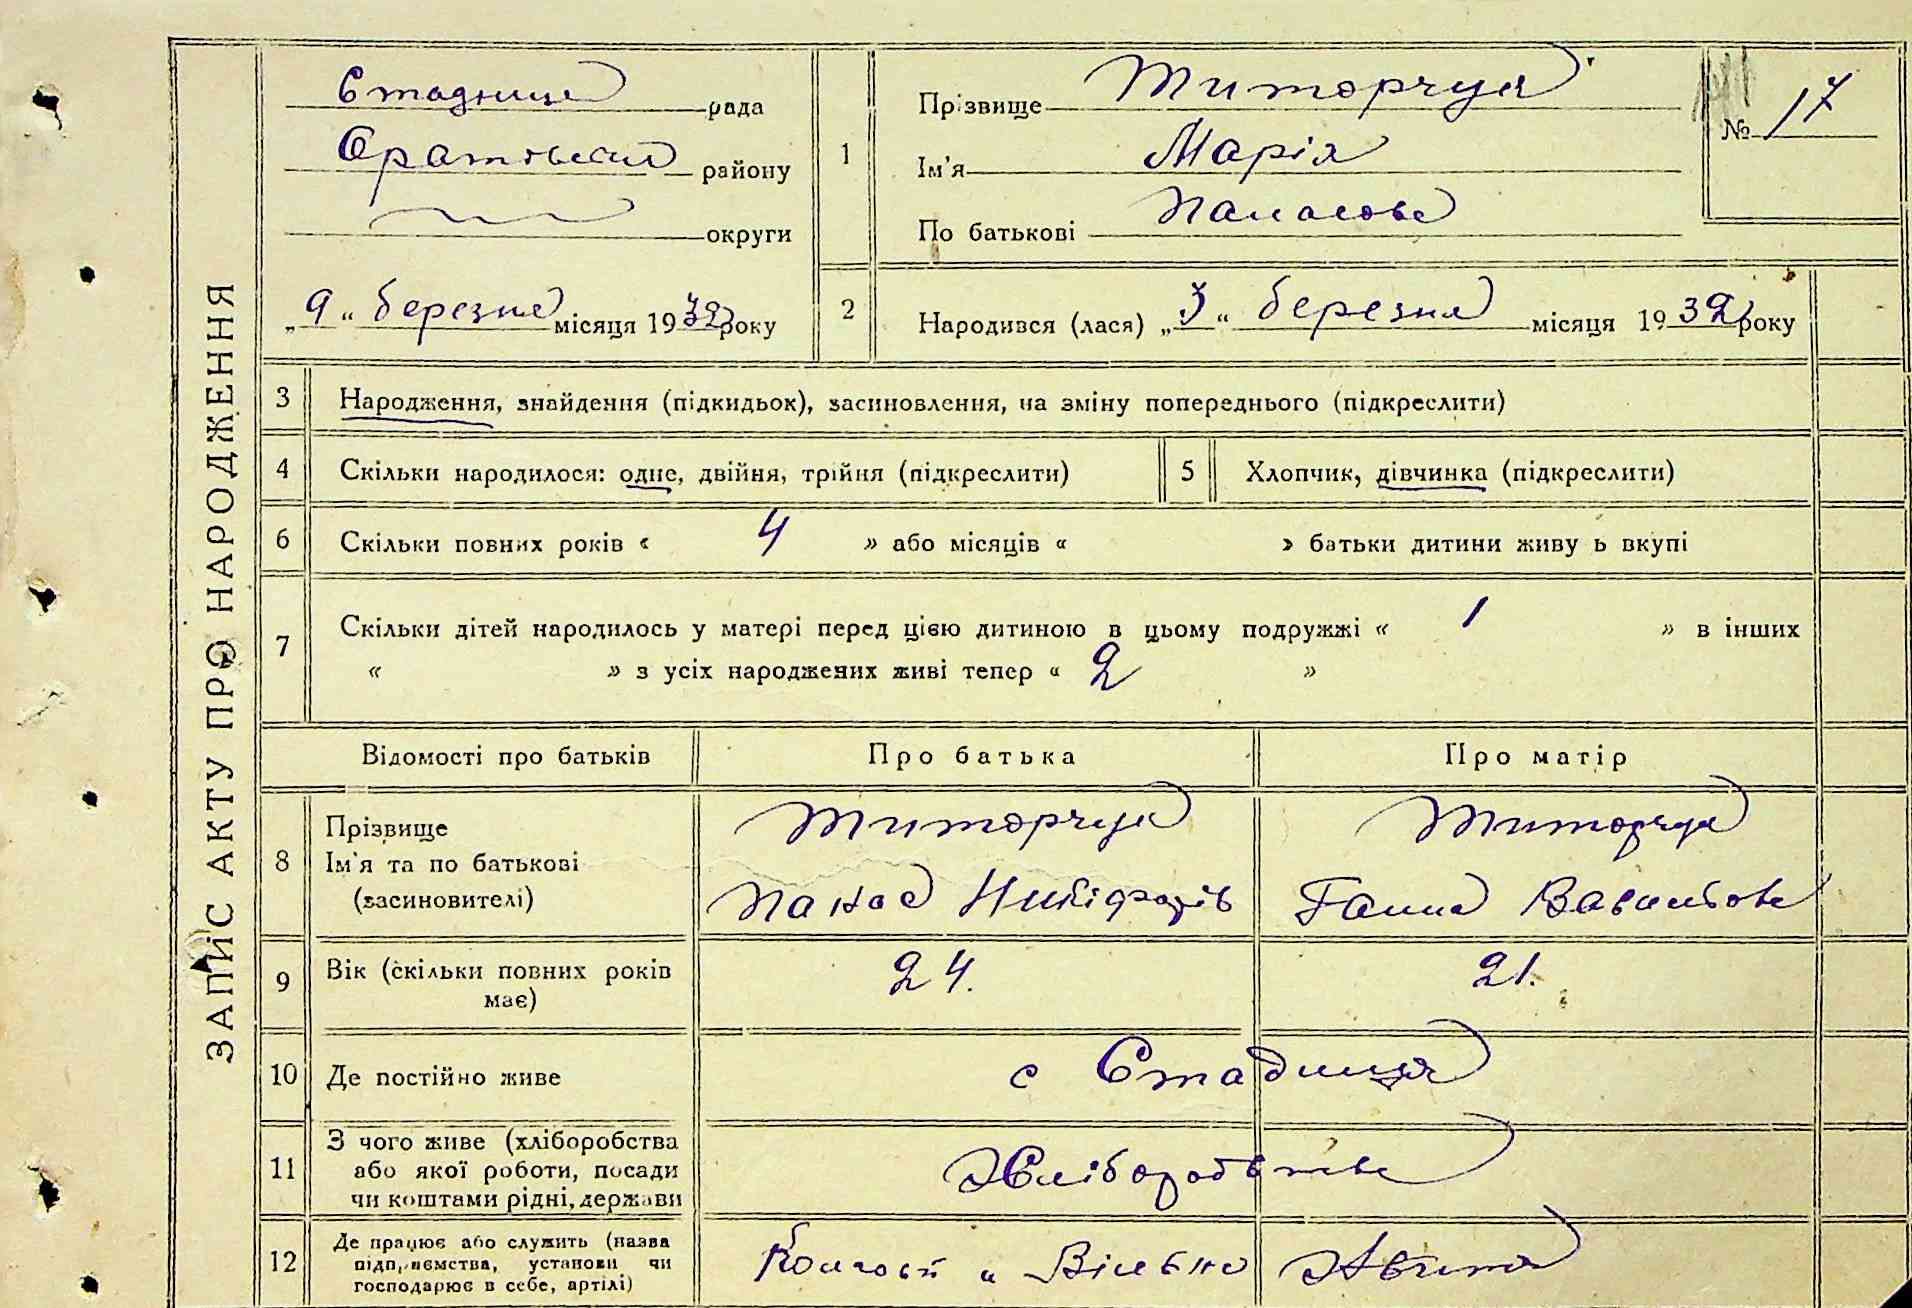 ЗАПИС АКТУ ПРО НАРОДЖЕННЯ
Стадниця рада
Оратовськ району
округи
„9“ березня місяця 1932 року
1
Прізвище Титорчук
Ім'я Марія
По батькові Панасова
№ 17
2
Народився (лася) „3“ березня місяця 1932 року
3 Народження, знайдення (підкидьок), засиновлення, на зміну попереднього (підкреслити)
4 Скільки народилося: одне, двійня, трійня (підкреслити)
5 Хлопчик, дівчинка (підкреслити)
6 Скільки повних років « 4 » або місяців « » батьки дитини живу ь вкупі
7 Скільки дітей народилось у матері перед цією дитиною в цьому подружжі « 1 » в інших
« » з усіх народжених живі тепер « 2 »
Відомості про батьків Про батька Про матір
8
Прізвище
Ім'я та по батькові
(засиновителі)
Титорчук
Панас Никіфорів
Титорчук
Ганна
9
Вік (скільки повних років
має)
24. 21.
10 Де постійно живе с Стадниця
11
З чого живе (хліборобства
або якої роботи, посади
чи коштами рідні, держави
Хліборобства
12
Де працює або служить (назва
підприємства, установи чи
господарює в себе, артілі)
Колгосп